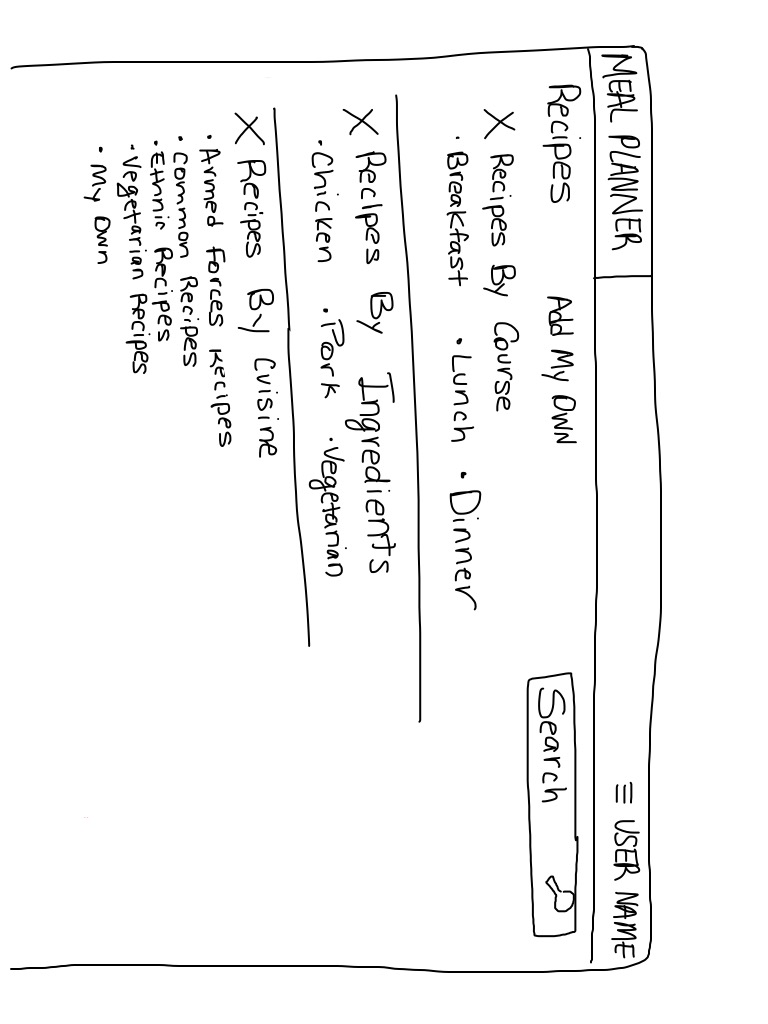 MEAL PLANNER ≡ USER NAME
Recipes Add My Own Search
X Recipes By Course
· Breakfast · Lunch · Dinner
X Recipes By Ingredients
· Chicken · Pork · Vegetarian
X Recipes By Cuisine
· Armed Forces Recipes
· Common Recipes
· Ethnic Recipes
· Vegetarian Recipes
· My Own